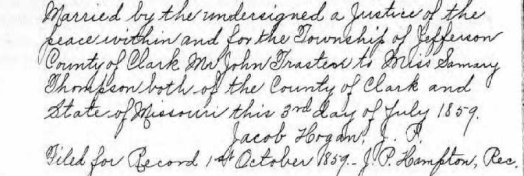 Married by the undersigned a Justice of the
peace within and for the Township of Jefferson
County of Clark Mr John Traster to Miss Samary
Thompson both of the County of Clark and
State of Missouri this 3rd day of July 1859.
Jacob Hogan, J. P.
Filed for Record 1st October 1859 - J. P. Hampton, Rec.